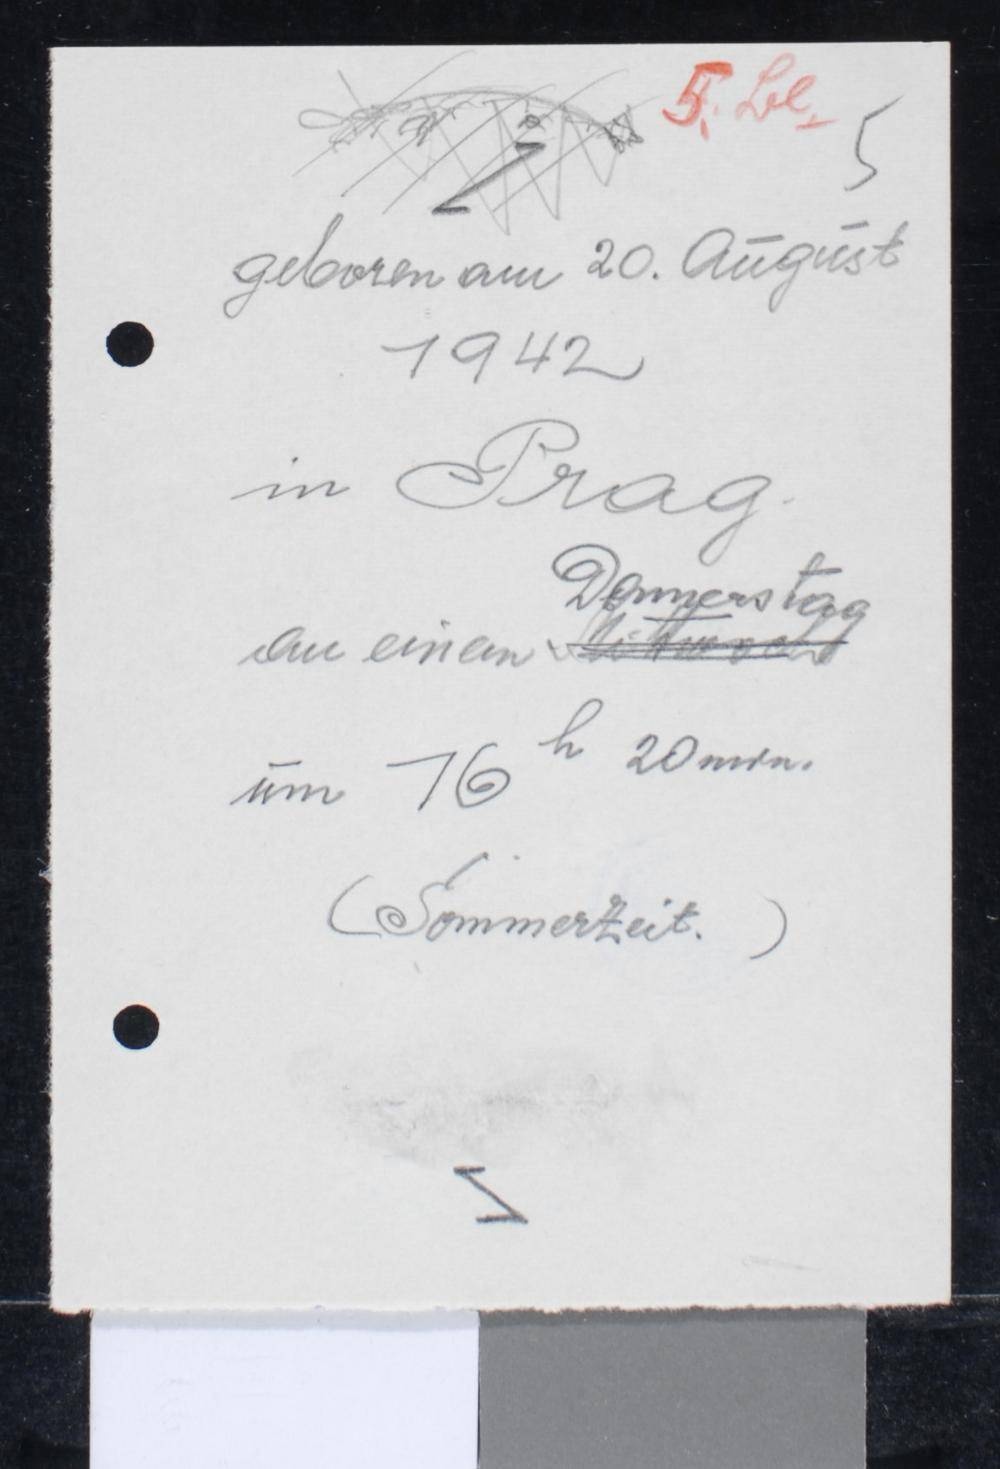 5. Bl.
5
geboren am 20. August
1942
in Prag.
Donnerstag
an einem Mittwoch
um 16 h 20 min.
(Sommerzeit.)